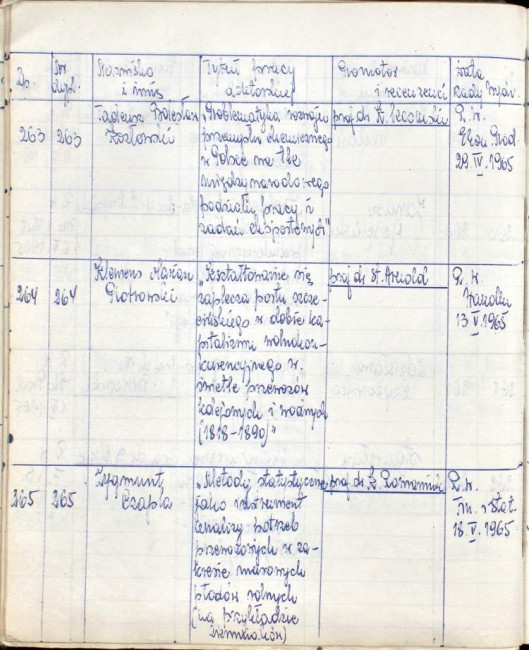 Lp. Nr dypl. Nazwisko i imię Tytuł pracy doktorskiej Promotor i recenzenci Data Rady Wydz.
263 263 Tadeusz Bolesław Kozłowski
„Problematyka rozwoju
przemysłu chemicznego
w Polsce na tle
międzynarodowego
podziału pracy i
zadań eksportowych"
prof. dr
R. W.
Ekon. Prod.
29. IV. 1965
264 264 Klemens Marian Piotrowski
„Kształtowanie się
zaplecza portu szcze-
cińskiego w dobie ka-
pitalizmu wolnokon-
kurencyjnego w
świetle przewozów
kolejowych i wodnych
(1818-1890)"
prof. dr St. Arnold
R. W.
Handlu
13 V. 1965
265 265 Zygmunt Czapla
„Metody statystyczne
jako instrument
analizy potrzeb
przewozowych w za-
kresie masowych
płodów rolnych
(na przykładzie
ziemniaków)
prof. dr
R. W.
Fin. i Stat.
18. V. 1965